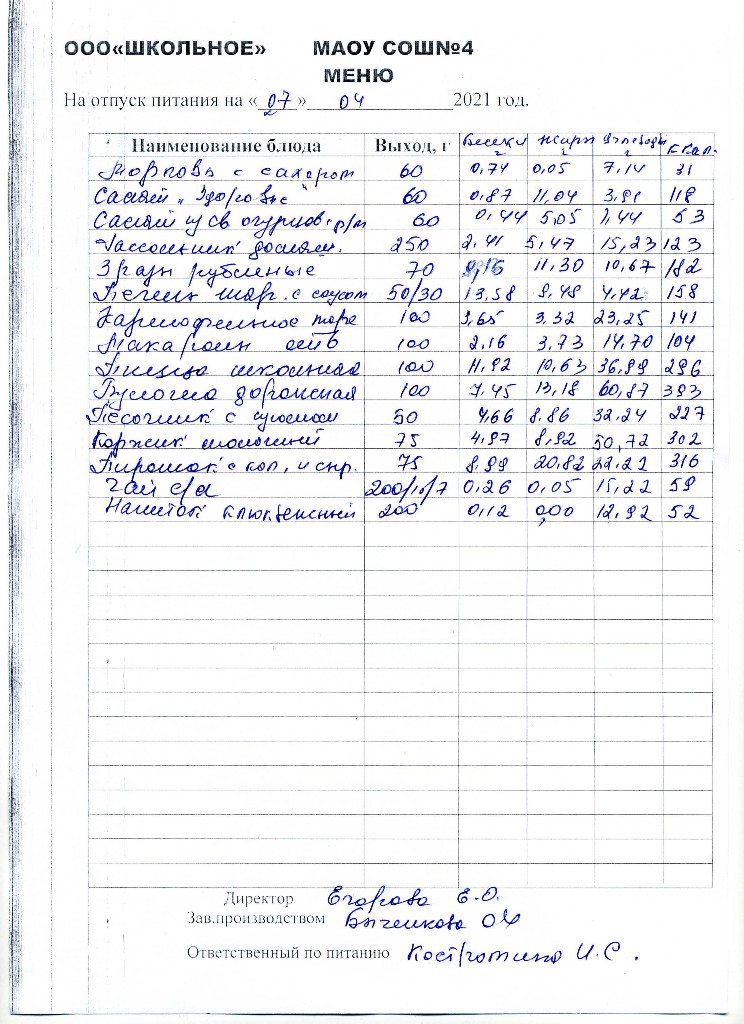 ООО«ШКОЛЬНОЕ» МАОУ СОШ№4
МЕНЮ
На отпуск питания на «07» 04 2021 год.
Наименование блюда Выход, г Белки г Жиры г Углеводы г Ккал.
Морковь с сахаром 60 0,74 0,05 7,14 31
Салат "Здоровье" 60 0,87 11,04 3,91 118
Салат из св огурцов с р/м 60 0,44 5,05 1,44 53
Рассольник домашн. 250 2,41 5,47 15,23 123
Зразы рубленые 70 11,30 10,67 182
Печень с соусом 50/30 13,58 9,48 4,42 158
Картофельное пюре 100 3,65 3,32 23,25 141
Макароны отв 100 2,16 3,73 14,70 104
Пицца школьная 100 11,92 10,63 36,99 296
Булочка дорожная 100 7,45 13,18 60,87 393
Песочник с 50 4,66 8.86 32,24 227
Коржик молочный 75 4,97 8,92 50,72 302
Пирожок с кап, и 75 8,99 20,82 22,22 316
Чай с/л 200/10/7 0,26 0,05 15,22 59
Напиток клюквенный 200 0,12 0,00 12,92 52
Директор Егорова Е.О.
Зав.производством Быченкова
Ответственный по питанию Костромина И.С.